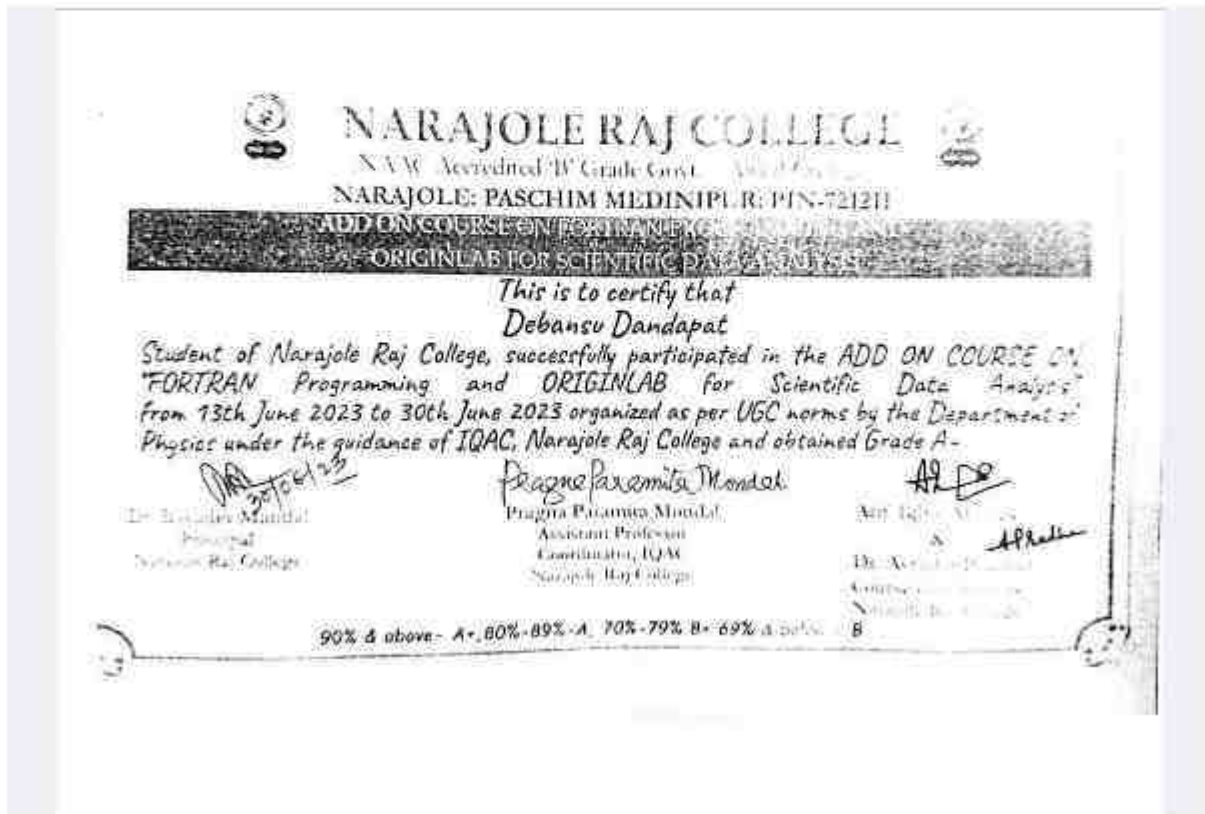 NARAJOLE RAJ COLLEGE
NAAC Accredited 'B' Grade Govt.
NARAJOLE: PASCHIM MEDINIPUR: PIN-721211
ADD ON COURSE ON FORTRAN
ORIGINLAB FOR SCIENTIFIC DATA ANALYSIS
This is to certify that
Debansu Dandapat
Student of Narajole Raj College, successfully participated in the ADD ON COURSE ON
"FORTRAN Programming and ORIGINLAB for Scientific Data Analysis"
from 13th June 2023 to 30th June 2023 organized as per UGC norms by the Department of
Physics under the guidance of IQAC, Narajole Raj College and obtained Grade A-
30/06/23
Pragna Paramita Mondal
Dr. Mandal
Principal
Narajole Raj College
Pragna Paramita Mondal
Assistant Professor
Coordinator, IQAC
Narajole Raj College
&
Dr.
Course
90% & above- A+, 80%-89%-A, 70%-79% B+ 69% & below B